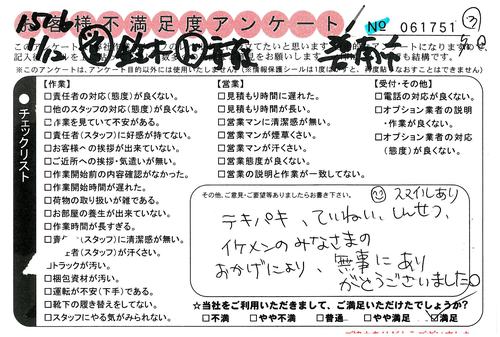 お客様不満足度アンケート
No 061751
【作業】
□責任者の対応（態度）が良くない。
□他のスタッフの対応（態度）が良くない。
□作業を見ていて不安がある。
□責任者（スタッフ）に好感が持てない。
□お客様への挨拶が出来ていない。
□ご近所への挨拶・気遣いが無い。
□作業開始前の内容確認がなかった。
□作業開始時間が遅れた。
□荷物の取り扱いが雑である。
□お部屋の養生が出来ていない。
□作業時間が長すぎる。
（スタッフ）に清潔感が無い。
者（スタッフ）が汗くさい。
□トラックが汚い。
□梱包資材が汚い。
□運転が不安（下手）である。
□靴下の履き替えをしてない。
□スタッフにやる気がみられない。
【営業】
□見積もり時間に遅れた。
□見積もり時間が長い。
□営業マンに清潔感が無い。
□営業マンが煙草くさい。
□営業マンが汗くさい。
□営業態度が良くない。
□営業の説明と作業が一致してない。
【受付・その他】
□電話の対応が良くない。
□オプション業者の説明
・作業が良くない。
□オプション業者の対応
（態度）が良くない。
チェックリスト
その他、ご意見・ご要望等ありましたらお書き下さい。
スマイルあり
テキパキ、ていねい、しんせつ、
イケメンのみなさまの
おかげにより、無事にあり
がとうございました。
☆当社をご利用いただきまして、ご満足いただけたでしょうか？
□不満 □やや不満 □普通 □やや満足 □満足